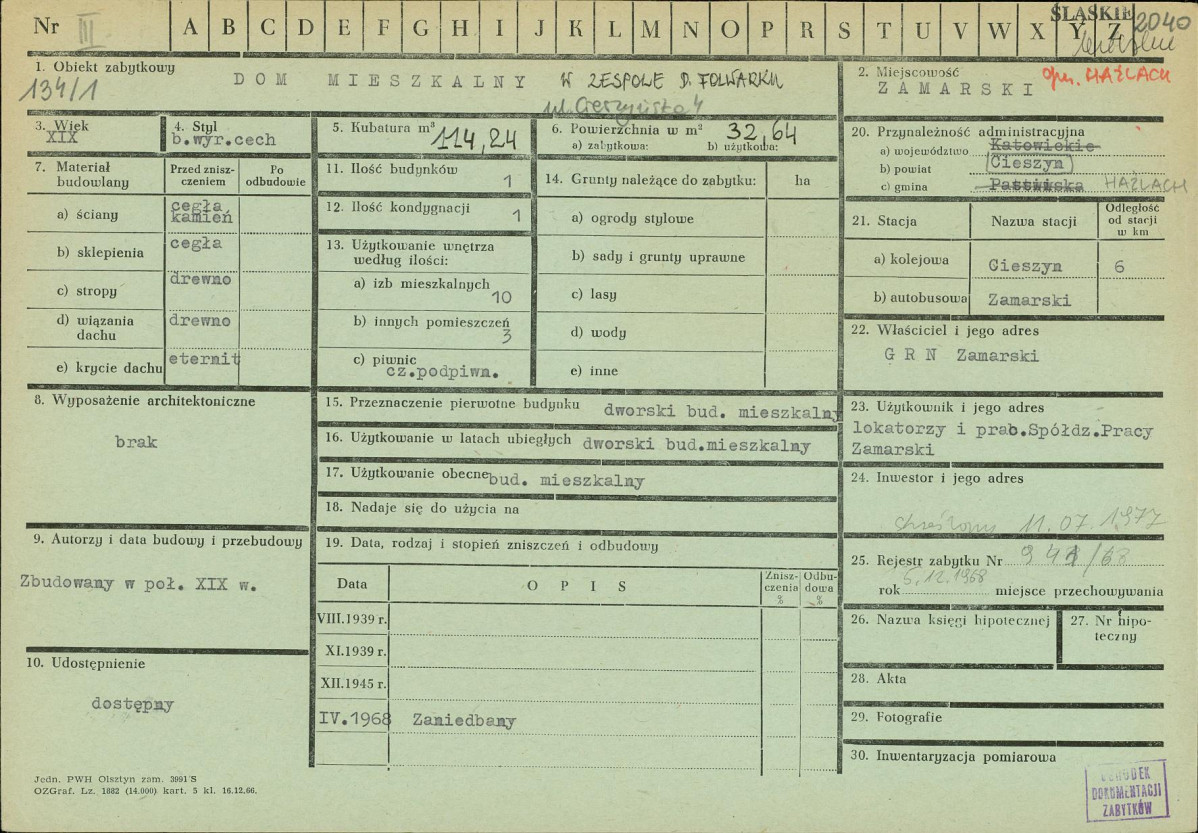 Nr III A B C D E F G H I J K L M N O P R S T U V W X Y Z ŚLĄSKIE 2040
1. Obiekt zabytkowy
134/1
DOM MIESZKALNY W ZESPOLE D. FOLWARKU
ul. Cieszyńska 4
2. Miejscowość gm. HAŻLACH
ZAMARSKI
3. Wiek
XIX
4. Styl
b.wyr.cech
5. Kubatura m³
114,24
6. Powierzchnia w m² 32,64
a) zabytkowa: b) użytkowa:
7. Materiał budowlany
Przed znisz-
czeniem
Po
odbudowie
a) ściany
cegła
kamień
b) sklepienia
cegła
c) stropy
drewno
d) wiązania
dachu
drewno
e) krycie dachu
eternit
8. Wyposażenie architektoniczne
brak
9. Autorzy i data budowy i przebudowy
Zbudowany w poł. XIX w.
10. Udostępnienie
dostępny
11. Ilość budynków
1
12. Ilość kondygnacji
1
13. Użytkowanie wnętrza
według ilości:
a) izb mieszkalnych
10
b) innych pomieszczeń
3
c) piwnic
cz.podpiwn.
14. Grunty należące do zabytku: ha
a) ogrody stylowe
b) sady i grunty uprawne
c) lasy
d) wody
e) inne
15. Przeznaczenie pierwotne budynku dworski bud. mieszkalny
16. Użytkowanie w latach ubiegłych dworski bud.mieszkalny
17. Użytkowanie obecne bud. mieszkalny
18. Nadaje się do użycia na
19. Data, rodzaj i stopień zniszczeń i odbudowy
Data
O P I S
Znisz-
czenia
%
Odbu-
dowa
%
VIII.1939 r.
XI.1939 r.
XII.1945 r.
IV.1968 Zaniedbany
20. Przynależność administracyjna
a) województwo Katowickie
b) powiat Cieszyn
c) gmina HAŻLACH
21. Stacja
Nazwa stacji
Odległość
od stacji
w km
a) kolejowa Cieszyn 6
b) autobusowa Zamarski
22. Właściciel i jego adres
G R N Zamarski
23. Użytkownik i jego adres
lokatorzy i prac.Spółdz.Pracy
Zamarski
24. Inwestor i jego adres
skreślony 11.07.1977
25. Rejestr zabytku Nr 941/68
rok 6.12.1968 miejsce przechowywania
26. Nazwa księgi hipotecznej
27. Nr hipo-
teczny
28. Akta
29. Fotografie
30. Inwentaryzacja pomiarowa
Jedn. PWH Olsztyn zam. 3991 S
OZGraf. Lz. 1882 (14.000) kart. 5 kl. 16.12.66.
OŚRODEK
DOKUMENTACJI
ZABYTKÓW